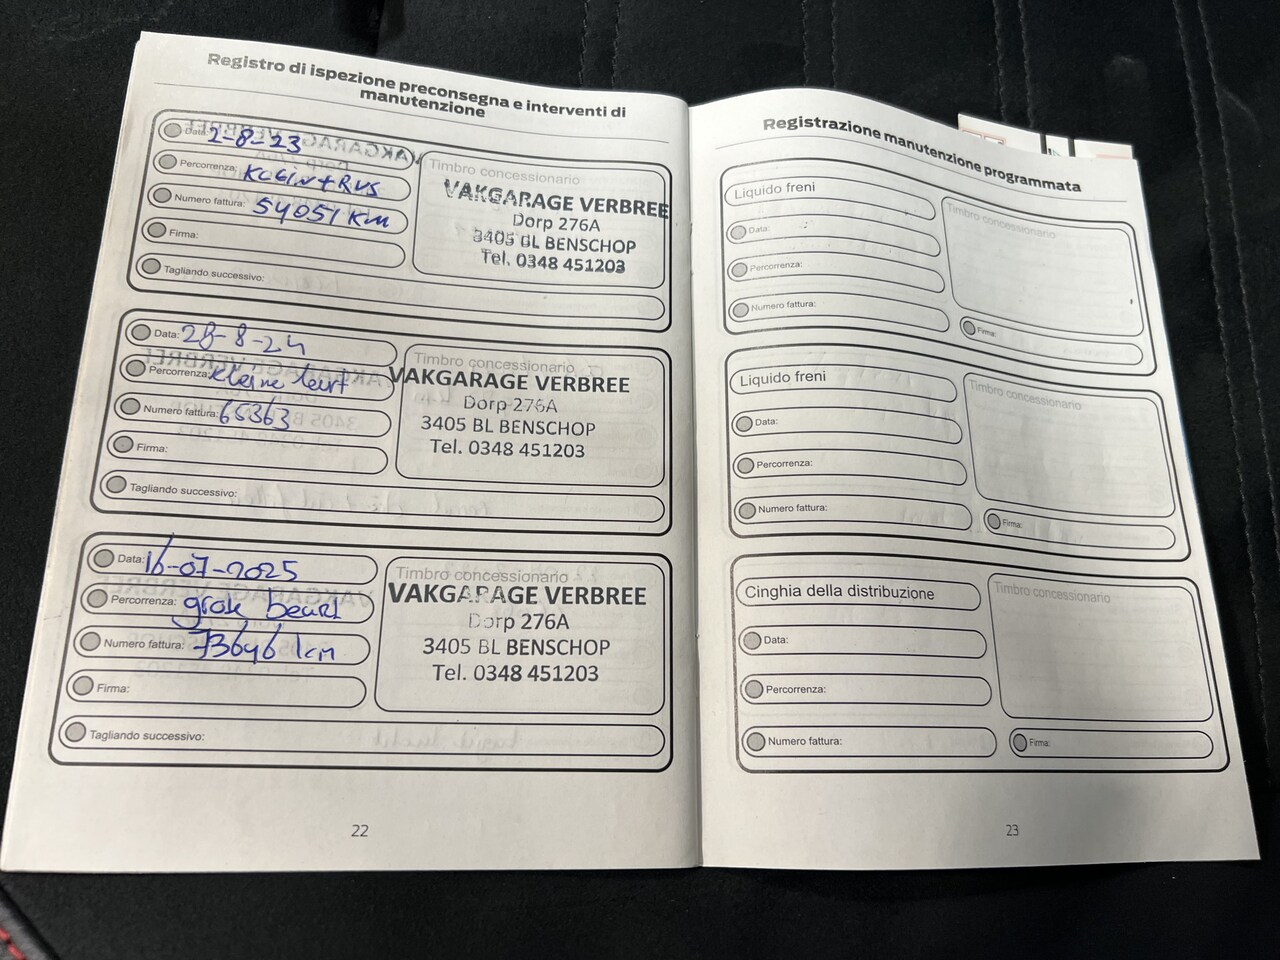 Registro di ispezione preconsegna e interventi di
manutenzione
Data: 2-8-23
Percorrenza:
Numero fattura: 54051 KM
Firma:
Tagliando successivo:
Timbro concessionario
VAKGARAGE VERBREE
Dorp 276A
3405 BL BENSCHOP
Tel. 0348 451203
Data: 28-8-24
Percorrenza: kleine beurt
Numero fattura: 65363
Firma:
Tagliando successivo:
Timbro concessionario
VAKGARAGE VERBREE
Dorp 276A
3405 BL BENSCHOP
Tel. 0348 451203
Data: 16-07-2025
Percorrenza: grote beurt
Numero fattura: 73646 km
Firma:
Tagliando successivo:
Timbro concessionario
VAKGARAGE VERBREE
Dorp 276A
3405 BL BENSCHOP
Tel. 0348 451203
22
Registrazione manutenzione programmata
Liquido freni
Data:
Percorrenza:
Numero fattura:
Timbro concessionario
Firma:
Liquido freni
Data:
Percorrenza:
Numero fattura:
Timbro concessionario
Firma:
Cinghia della distribuzione
Data:
Percorrenza:
Numero fattura:
Timbro concessionario
Firma:
23